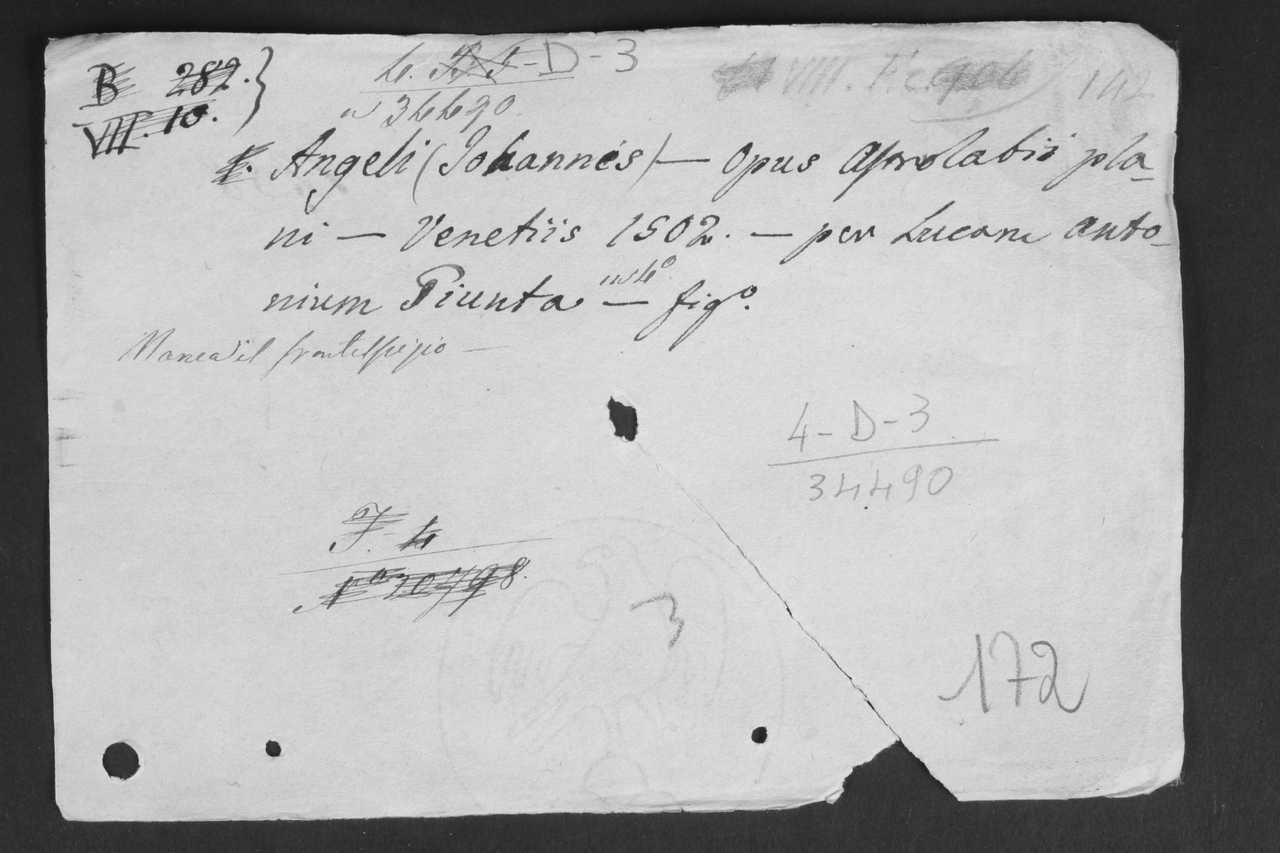 B 282.
VII. 10.
4. D-3
34490
142
Angeli (Johannes) — Opus Astrolabii pla-
ni — Venetiis 1502. — per Lucam anto-
nium Giunta — in 4º figº.
Manca il frontespizio —
4-D-3
34490
F. 4
3
172